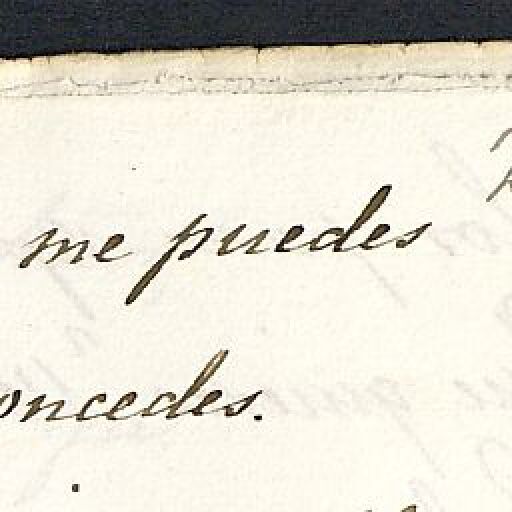 me puedes
oncedes.